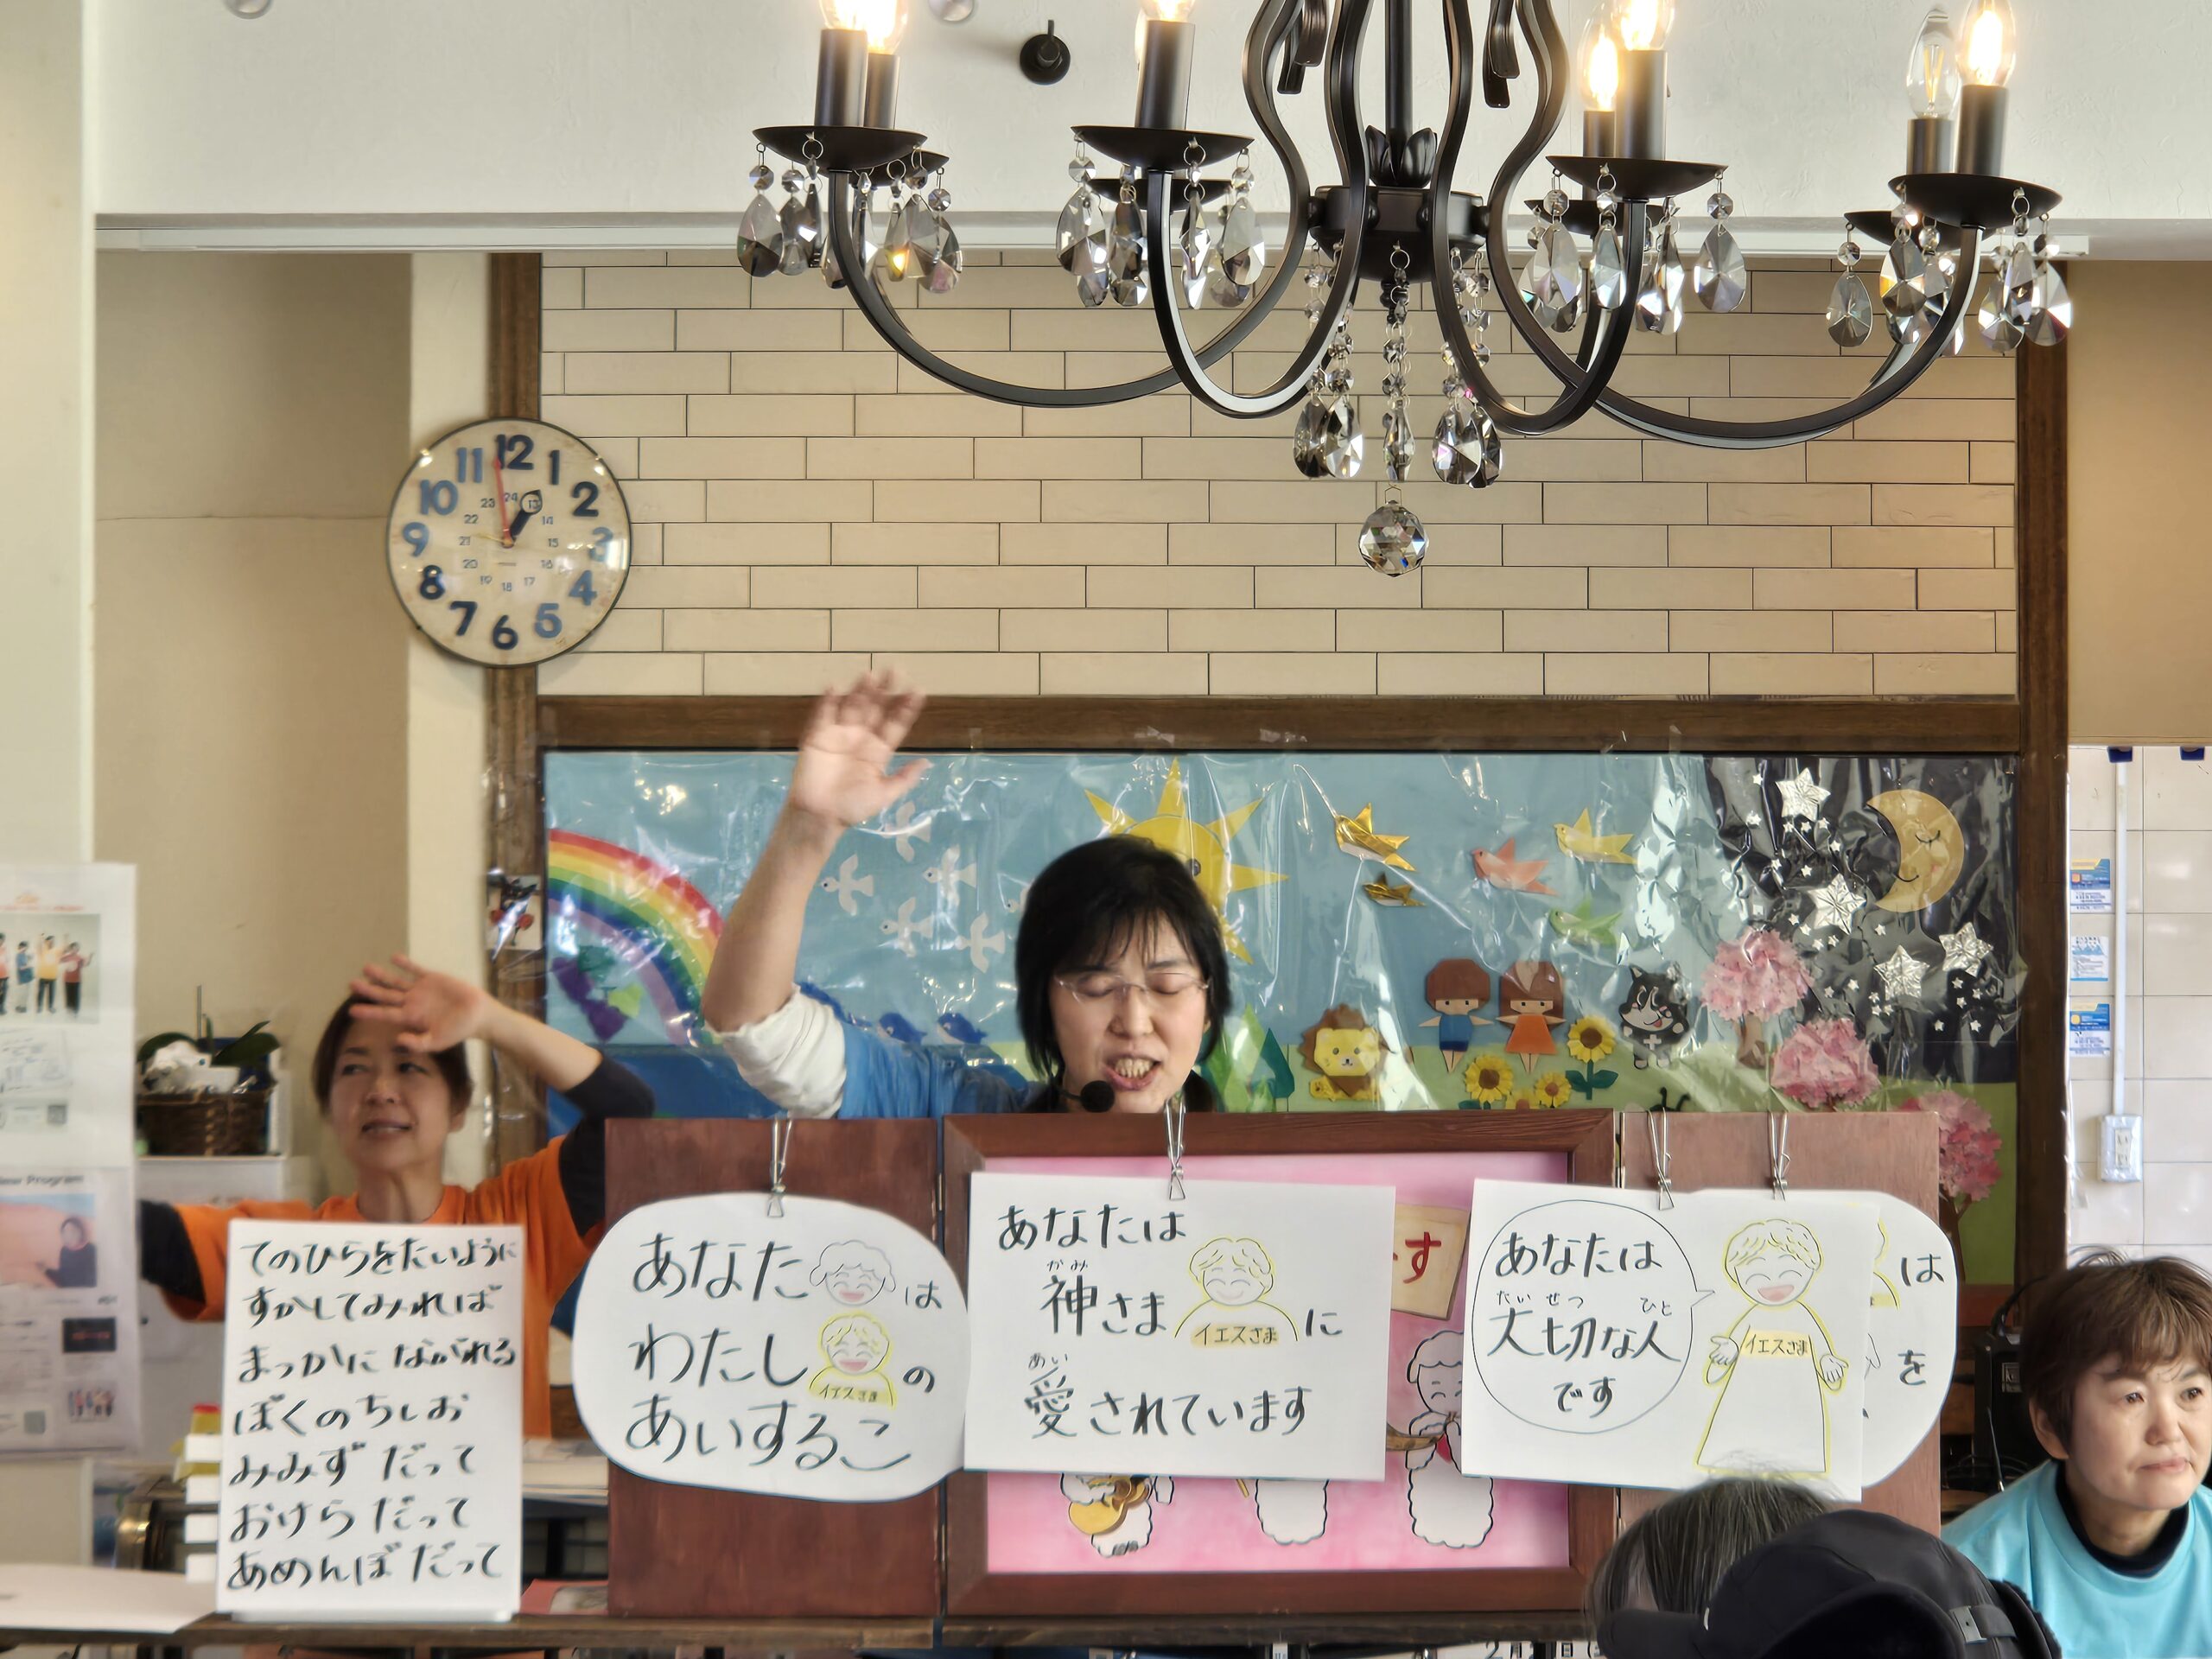 12
1
2
3
4
5
6
7
8
9
10
11
24
13
14
15
16
17
18
19
20
21
22
23
New Program
てのひらをたいように
すかしてみれば
まっかに ながれる
ぼくのちしお
みみず だって
おけら だって
あめんぼ だって
あなた は
わたし の
イエスさま
あいするこ
あなたは
かみ
神さま に
イエスさま
あい
愛されています
す
あなたは
たいせつ ひと
大切な人
です
イエスさま
は
を
2月